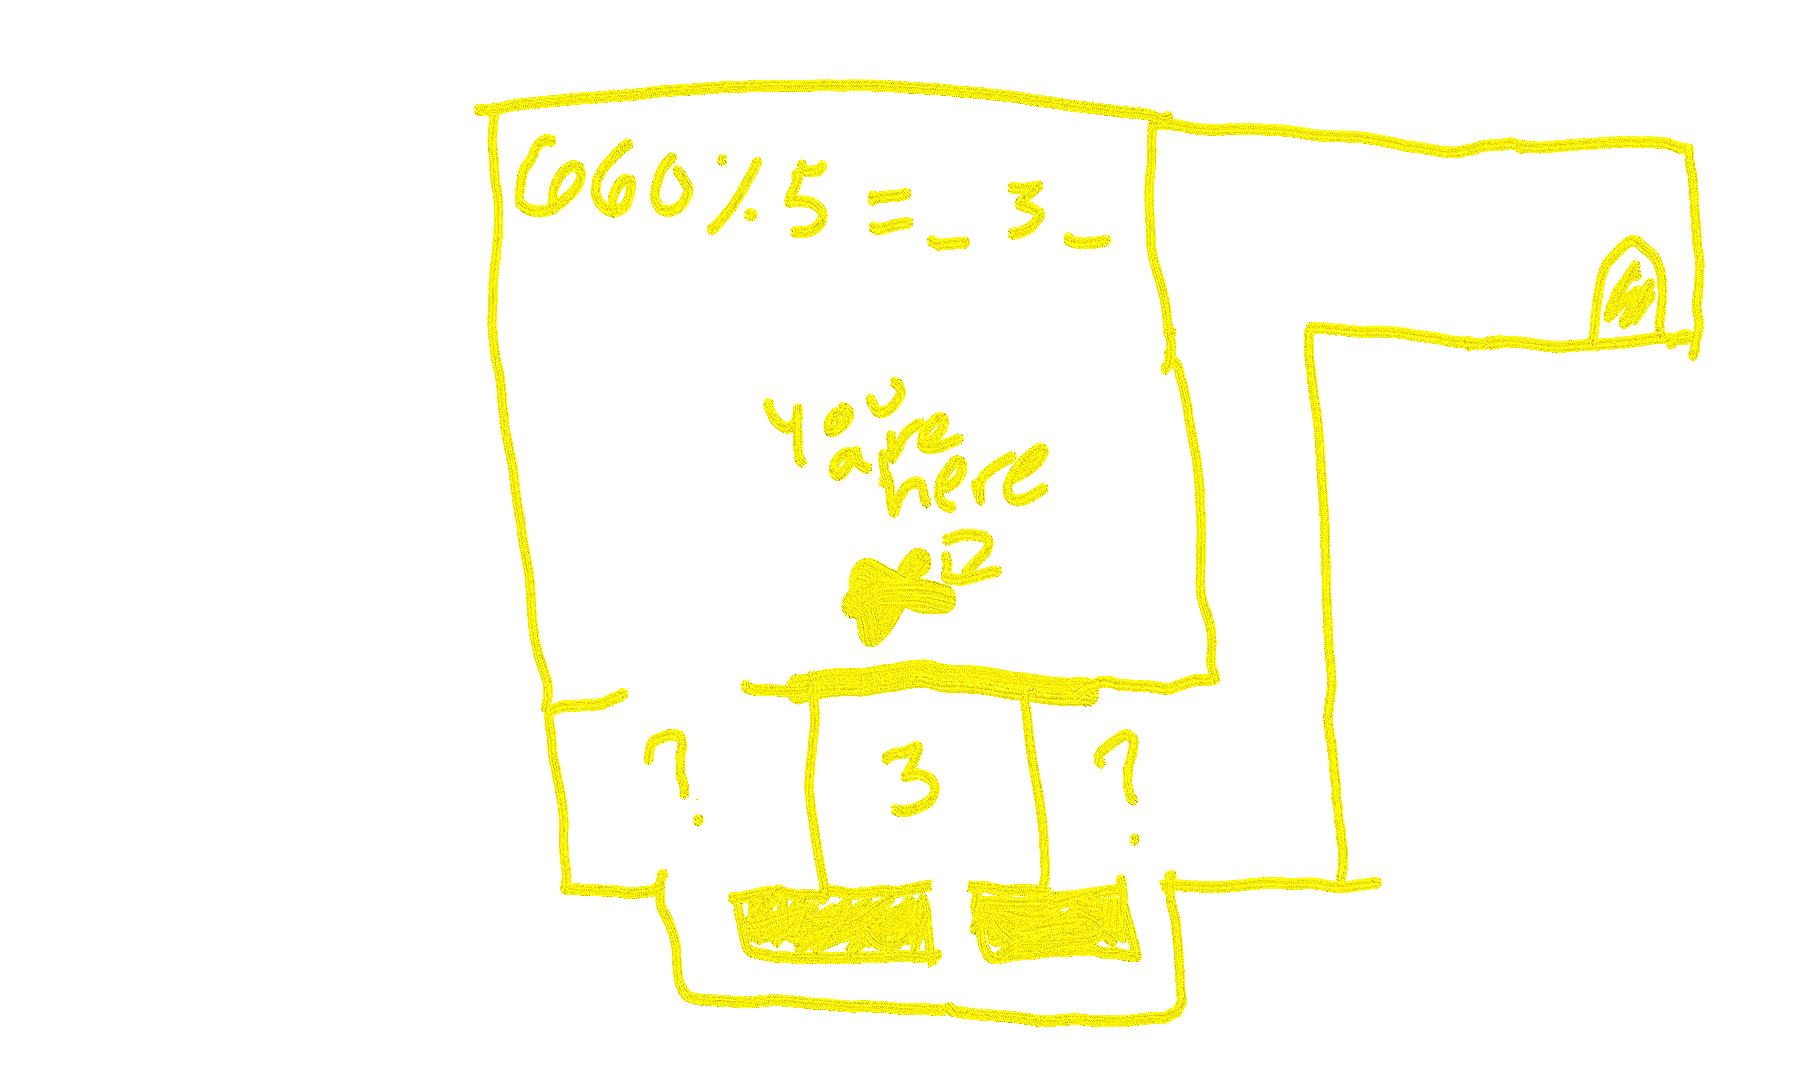 660%5=_3_
you
are
here
? 3 ?